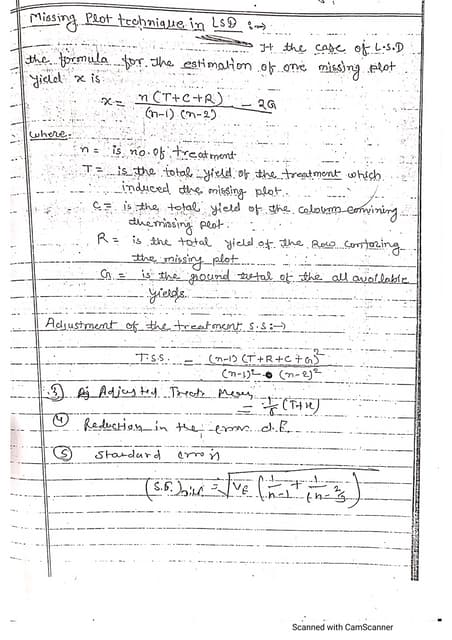 Missing Plot technique in LSD :→
It the case of L.S.D
the formula for the estimation of one missing plot
yield x is
x = n(T+C+R) / (n-1) (n-2) - 2G
where.
n = is no. of treatment
T = is the total yield of the treatment which
induced the missing plot.
C = is the total yield of the coloum
the missing plot.
R = is the total yield of the Row
the missing plot
G = is the total of the all available
yields.
Adjustment of the treatment s.s:→
T.S.S. = (n-1) (T+R+C+G)² / (n-1)² (n-2)²
3 Adjusted Treat Mean
= (T+x)
4 Reduction in the error d.f.
5 standard error